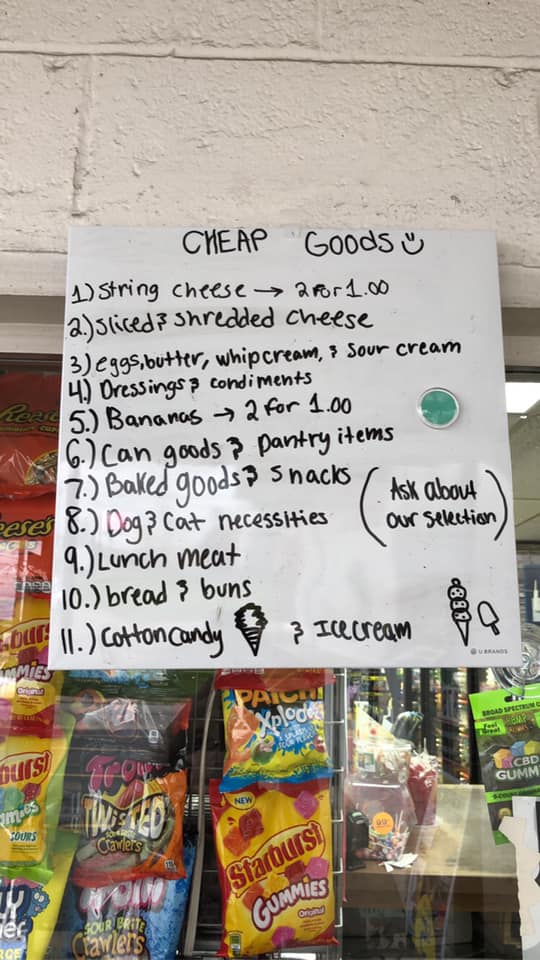 CHEAP GOODS
1) String cheese → 2 for 1.00
2.) Sliced & Shredded Cheese
3) eggs, butter, whipcream, & Sour cream
4) Dressings & condiments
5.) Bananas → 2 for 1.00
6.) Can goods & pantry items
7.) Baked goods & snacks
(Ask about
our selection)
8.) Dog & Cat necessities
9.) Lunch meat
10.) bread & buns
11.) Cotton candy & Icecream
U BRANDS
Reese's
Starburst
GUMMIES
Original
SOURS
Trolli
TWISTED
Crawlers
Trolli
SOUR BRITE
Crawlers
PATCH
Xploderz
NEW
Starburst
GUMMIES
Original
BROAD SPECTRUM
Feel Great
CBD
GUMM